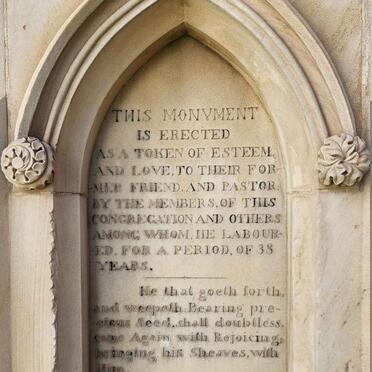 THIS MONVMENT
IS ERECTED
AS A TOKEN OF ESTEEM,
AND LOVE, TO THEIR FOR-
MER FRIEND, AND PASTOR,
BY THE MEMBERS, OF THIS
CONGREGATION AND OTHERS
AMONG WHOM, HE LABOUR-
ED, FOR A PERIOD, OF 38
YEARS.
He that goeth forth,
and weepeth Bearing pre-
cious Seed, shall doubtless,
come Again with Rejoicing,
bringing his Sheaves, with
Him.